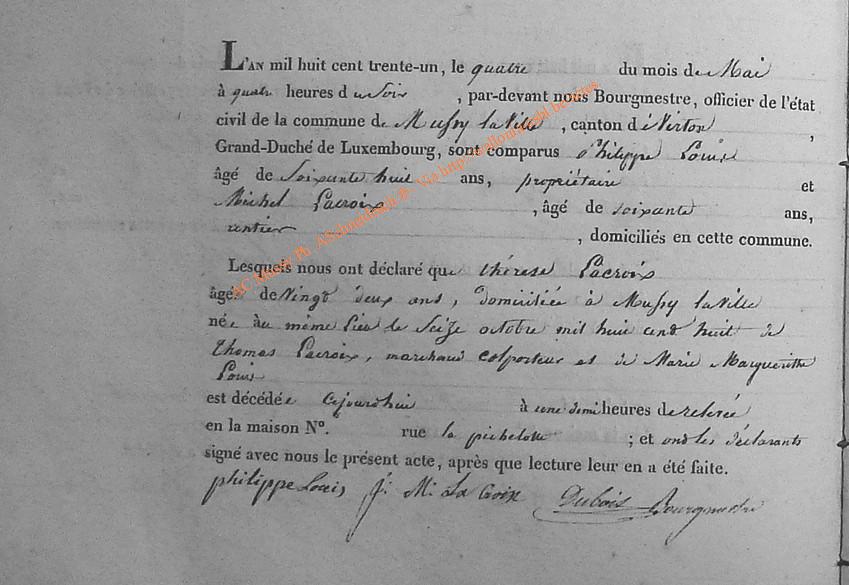 L'AN mil huit cent trente-un, le quatre du mois de Mai
à quatre heures du soir, par-devant nous Bourgmestre, officier de l'état
civil de la commune de Mussy la Ville, canton de Virton,
Grand-Duché de Luxembourg, sont comparus Philippe Louis
âgé de soixante huit ans, propriétaire et
Michel Lacroix, âgé de soixante ans,
rentier, domiciliés en cette commune.
Lesquels nous ont déclaré que thérese Lacroix
âgée de Vingt deux ans, domiciliée à Mussy la Ville
née au même lieu le Seize octobre mil huit cent huit de
thomas Lacroix, marchand colporteur et de Marie Marguerithe
Louis
est décédée cejourdhui à une demi heures de relevée
en la maison N°. rue la pichelotte; et ont les déclarants
signé avec nous le présent acte, après que lecture leur en a été faite.
philippe Louis J. M. La Croix Dubois Bourgmestre
AC Mussy Ph ASchmidtsch ® Via